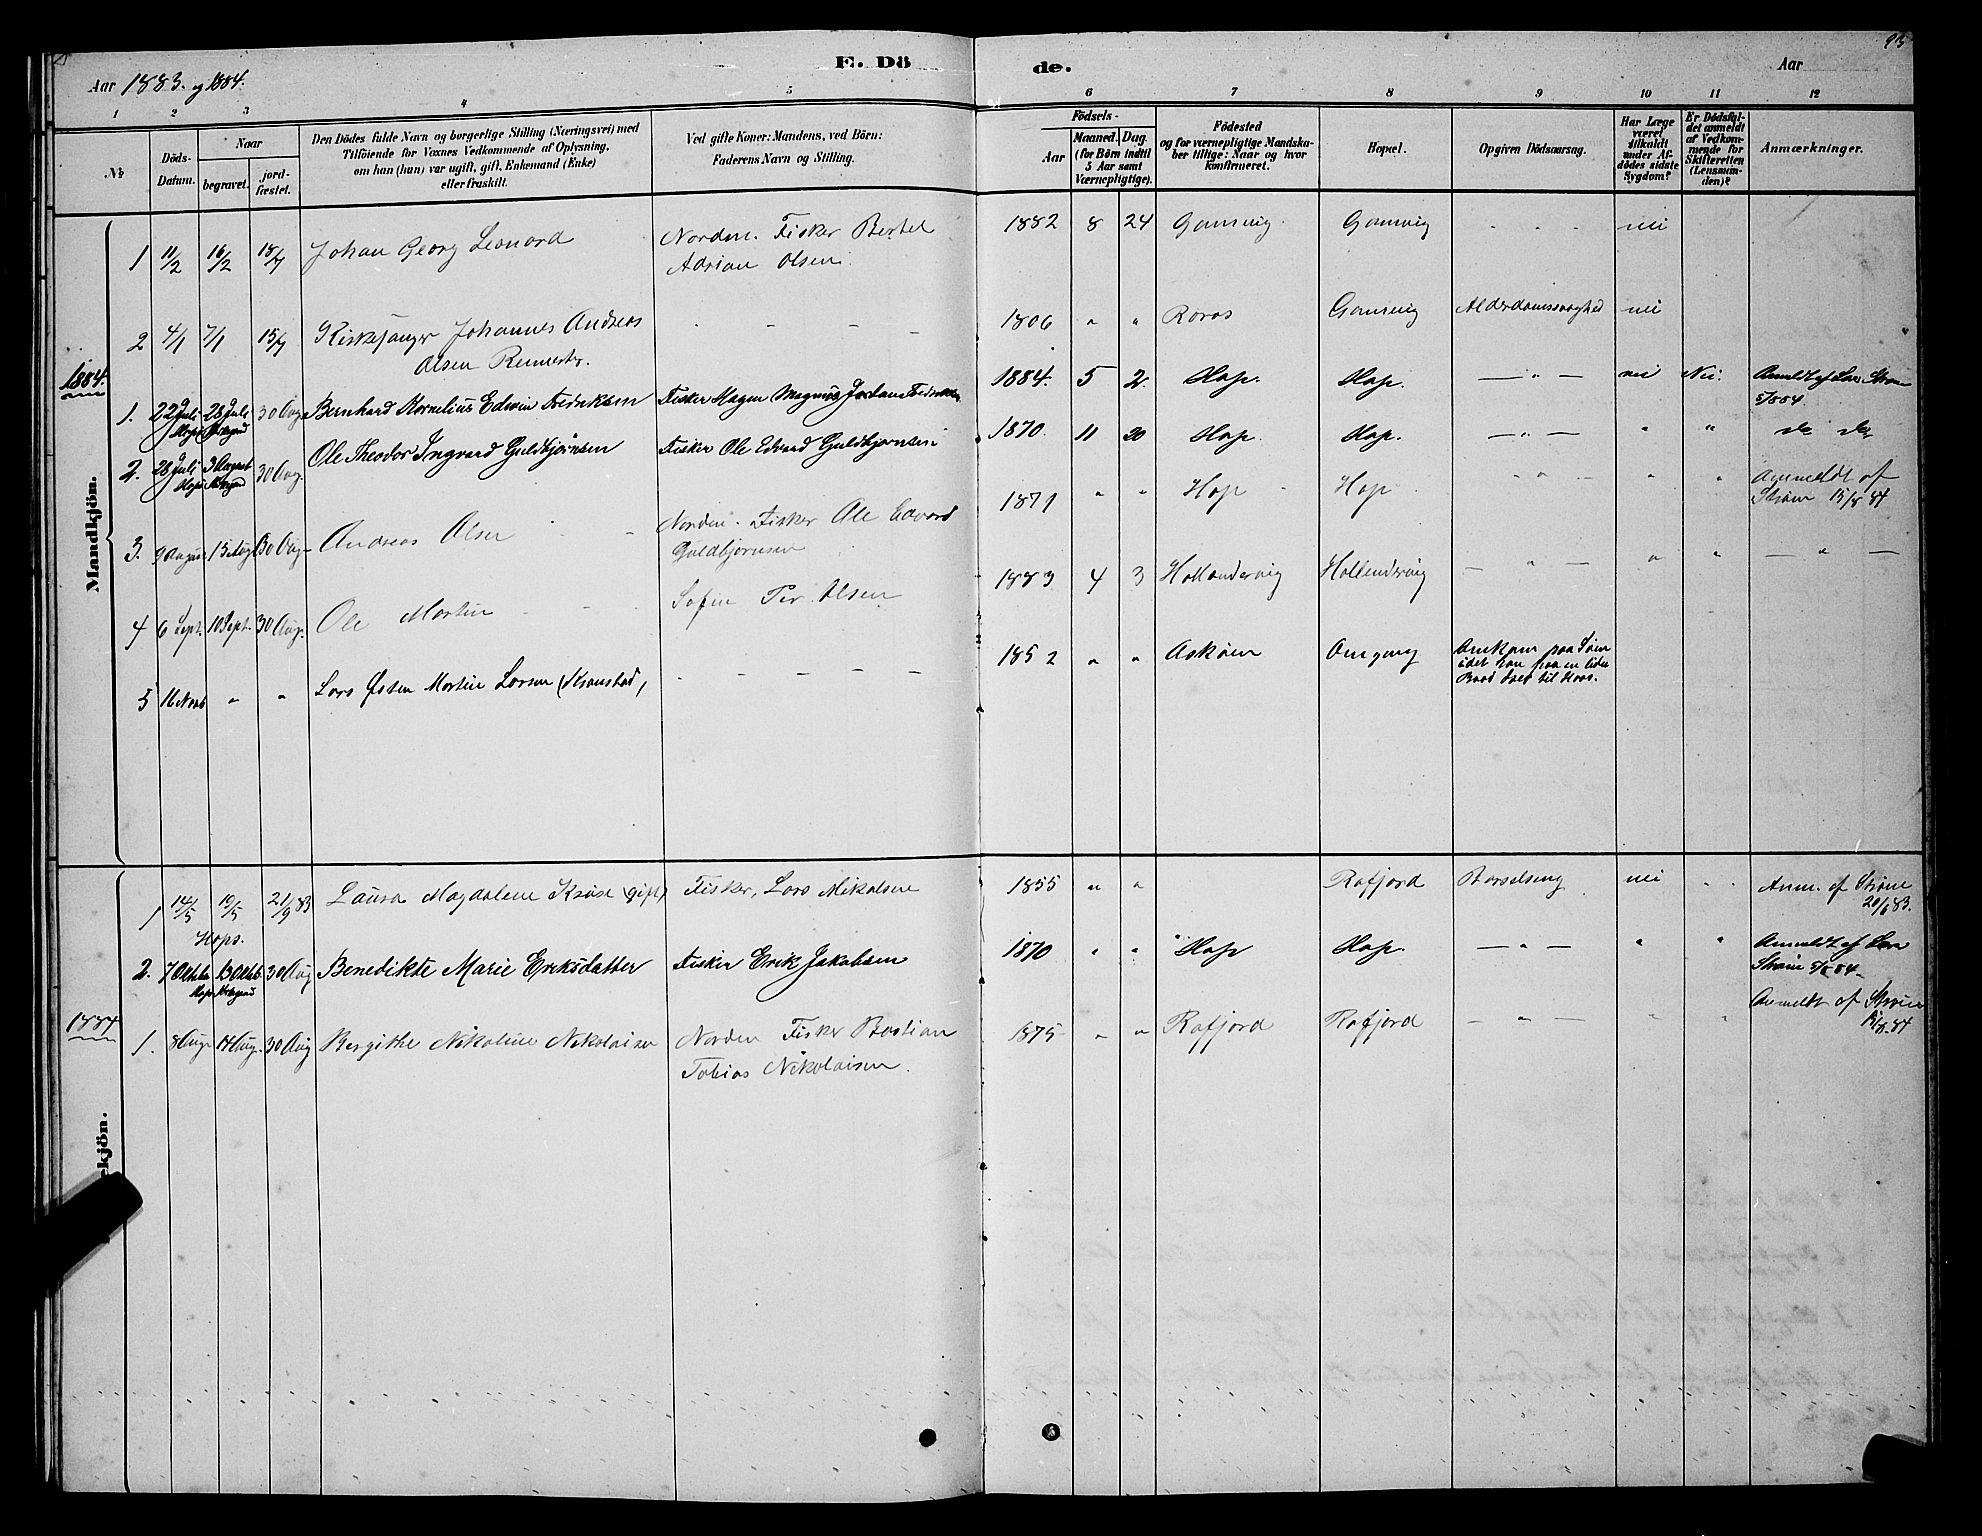 E. Dö de.
Aar 1883. og 1884.
Aar
93
1 2 3 4 5 6 7 8 9 10 11 12
No
Döds-Datum.
Naar
begravet.
jord-fæstet.
Den Dödes fulde Navn og borgerlige Stilling (Næringsvei) med
Tilföiende for Voxnes Vedkommende af Oplysning,
om han (hun) var ugift, gift, Enkemand (Enke)
eller fraskilt.
Ved gifte Koner: Mandens, ved Börn:
Faderens Navn og Stilling.
Födsels-
Aar
Maaned. Dag.
(for Börn indtil
5 Aar samt
Værnepligtige).
Födested
og for værnepligtige Mandska-
ber tillige: Naar og hvor
konfirmeret.
Bopæl.
Opgiven Dödsaarsag.
Har Læge
været
tilkaldt
under Af-
dödes sidste
Sygdom?
Er Dödsfal-
det anmeldt
af Vedkom-
mende for
Skifteretten
(Lensman-
den)?
Anmærkninger.
Mandkjön.
1 11/2 16/2 18/7 Johan Georg Leonard Nordm. Fisker Bertel
Adrian Olsen. 1882 8 24 Gamvig Gamvig " " " nei
2 4/1 7/1 15/7 Kirkesanger Johannes Andreas
Olsen 1806 " " Roros Gamvig Alderdomssvaghed nei
1884.
1. 22 Juli 28 Juli 30 Aug Bernhard Kornelius Edwin Fredriksen Fisker Hagen Magnus Jordan Fredriksen 1884. 5 2. Hop. Hop. — " — nei Nei. Anmeldt af Lars Strøm
5/8 84.
2. 28 Juli 3 August 30 Aug. Ole Theodor Ingvard Guldbjørnsen Fisker Ole Edvard Guldbjørnsen 1870. 11 20 Hop. Hop. — " — " " do do
3. 9 August 13 Aug 30 Aug Andreas Olsen Nordm. Fisker Ole Edvard
Guldbjørnsen 1871 " " Hop Hop " " " " Anmeldt af
Strøm 15/8 84
4 6 Sept. 10 Sept. 30 Aug. Ole Martin Søfin Per Olsen 1883 4 3 Hollandervig Hollendervig — " — " " — " —
5 16 Novb " " Lars Østen Martin Larsen (Kranstad) 1852 " " Askøen Omgang Omkom paa Søen
idet han paa en liden
Baad drev til Havs.
1 14/5 19/5 21/9 83 Laura Magdalene Kruse (gift) Fisker, Lars Mikalsen 1855 " " Rafjord Barselseng nei " " Anm. af Strøm
20/6 83.
Hops.
2. 7 Oktbr 13 Oktb 30 Aug Benedikte Marie Eriksdatter Fisker Erik Jakobsen 1870 " " Hop Hop. — " — " " Anmeldt af Lars
Strøm 5/8 84.
1884
1. 8 Aug 14 Aug. 30 Aug Bergithe Nikoline Nikolaisen Nordm Fisker Bastian
Tobias Nikolaisen. 1875 " " Rafjord Rafjord — " — " " Anmeldt af Strøm
15/8. 84
ekjön.